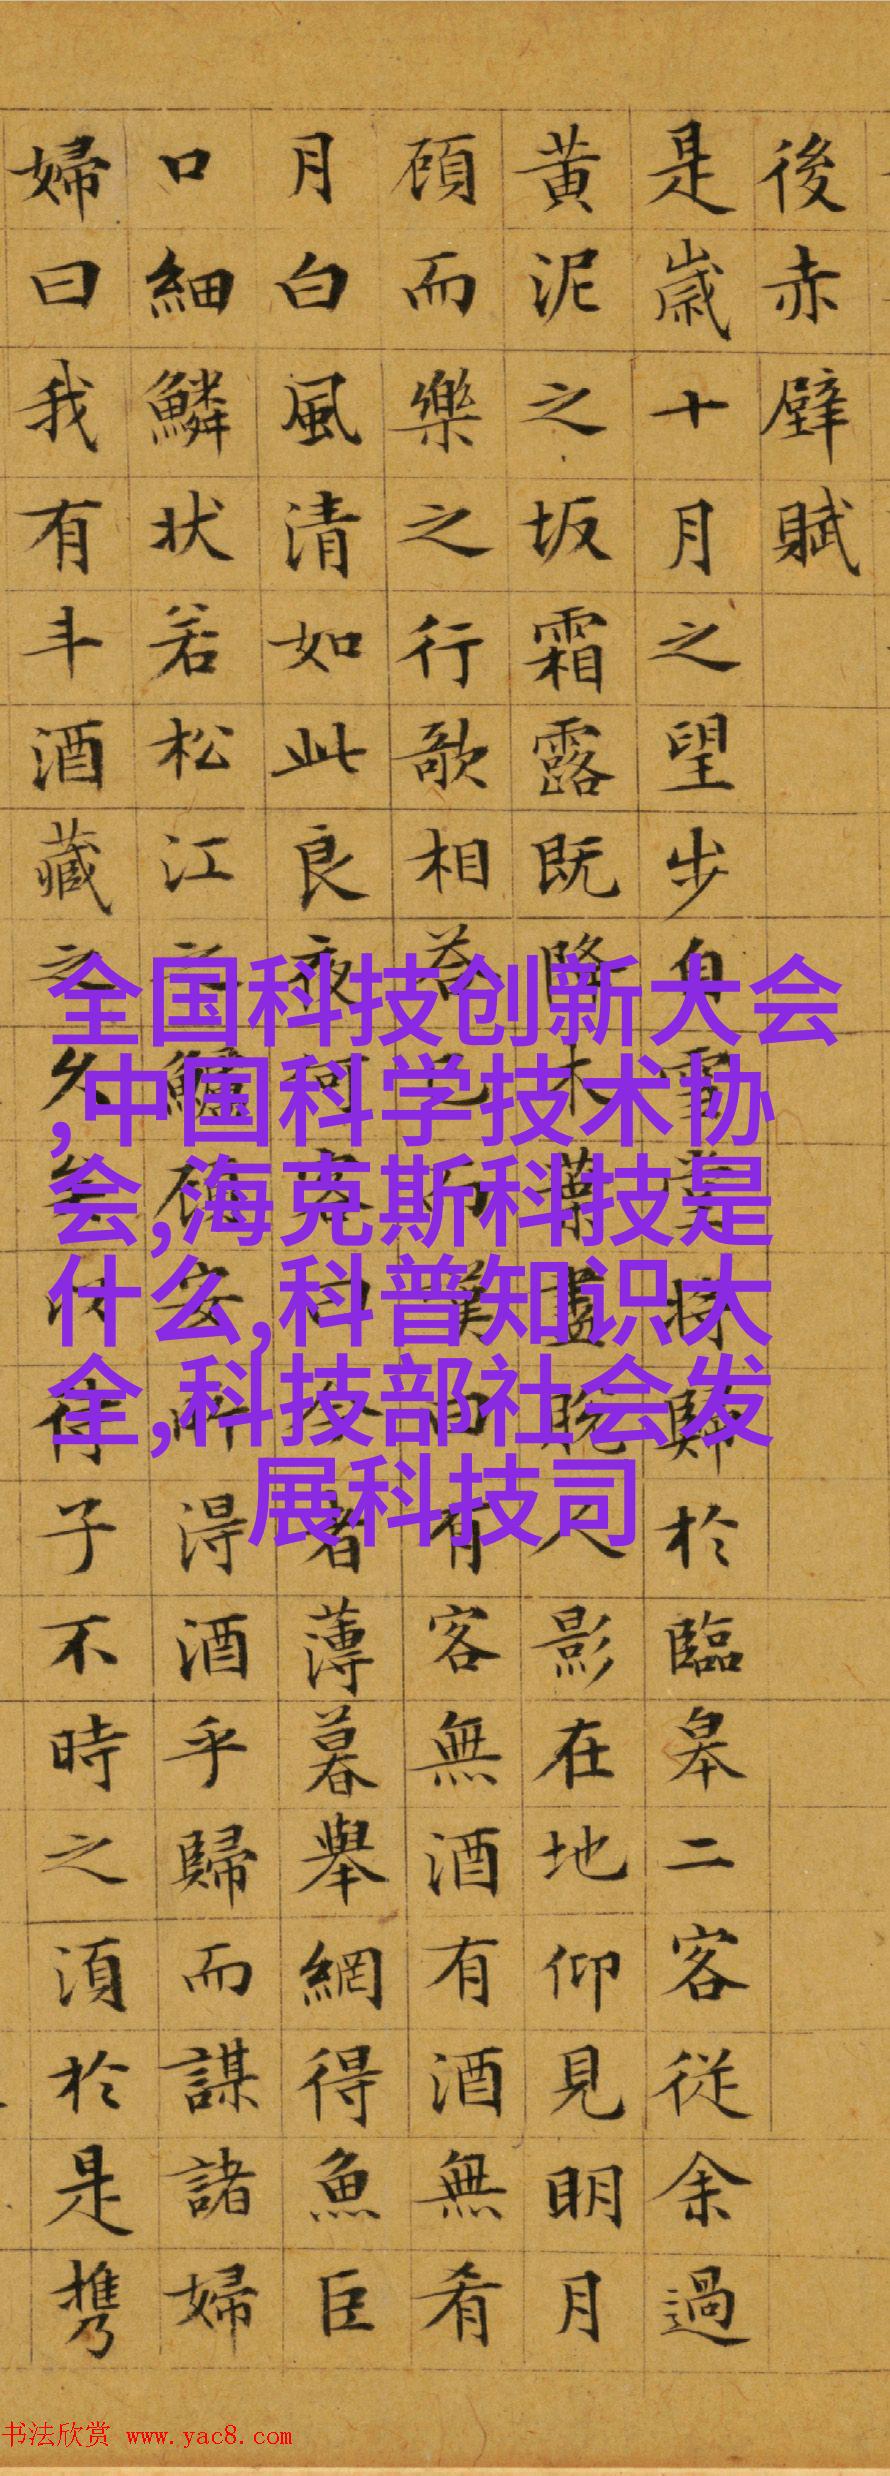 後赤壁賦
是歳十月之望步自雪堂将歸於臨皋二客從余過
黄泥之坂霜露既降木葉盡脫人影在地仰見明月
頋而樂之行歌相荅已而嘆曰有客無酒有酒無肴
月白風清如此良夜何客曰今者薄暮舉網得魚巨
口細鱗状若松江之鱸頋安所淂酒乎歸而謀諸婦
婦曰我有斗酒藏之久矣以待子不時之湏於是携
全国科技创新大会
,中国科学技术协
会,海克斯科技是
什么,科普知识大
全,科技部社会发
展科技司
书法欣赏 www.yac8.com